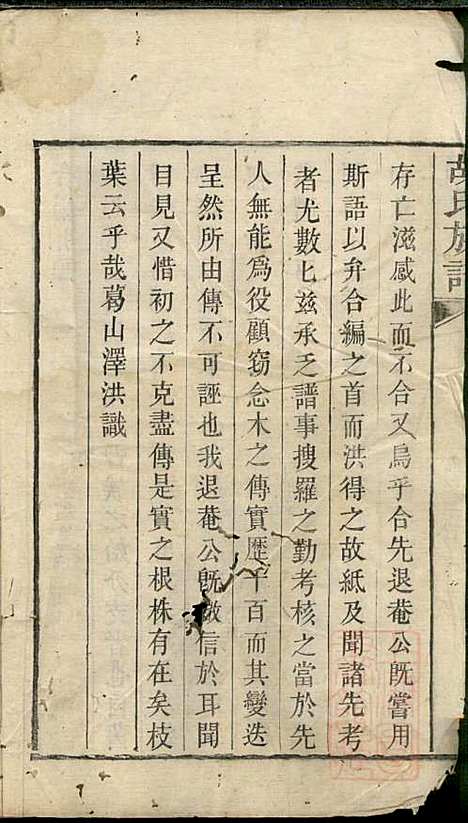 胡氏族譜
存亡滋感此而不合又烏乎合先退菴公旣嘗用
斯語以弁合編之首而洪得之故紙及聞諸先考
者尤數匕兹承乏譜事搜羅之勤考核之當於先
人無能爲役顧窃念木之傳實歷千百而其變迭
呈然所由傳不可誣也我退菴公旣徵信於耳聞
目見又惜初之不克盡傳是實之根株有在矣枝
葉云乎哉葛山澤洪識